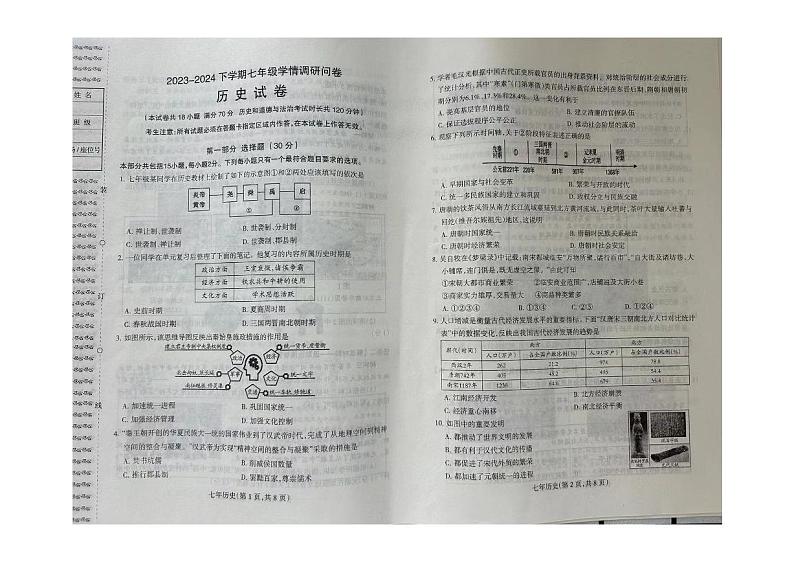 姓 名
班 级
场/座位号
装
订
线
2023-2024 下学期七年级学情调研问卷
历 史 试 卷
(本试卷共18小题 满分70分 历史和道德与法治考试时长共120分钟)
考生注意:所有试题必须在答题卡指定区域内作答,在本试卷上作答无效。
第一部分 选择题(30分)
本部分共包括15小题,每小题2分。下列每小题只有一个最符合题目要求的选项。
1. 七年级某同学在历史教材上绘制了如下的示意图①和②两处应该填写的依次是
炎帝 黄帝 尧 舜 禹 启
① ②
A. 禅让制、世袭制 B. 世袭制、分封制
C. 世袭制、禅让制 D. 世袭制、郡县制
2. 一位同学在单元复习后整理了下面的笔记。他复习的内容所属历史时期是
政治方面 王室衰微,诸侯争霸
经济方面 铁农具和牛耕的使用
文化方面 学术思想活跃
A. 史前时期 B. 夏商周时期
C. 春秋战国时期 D. 三国两晋南北朝时期
3. 如图所示,该思维导图反映出秦始皇施政措施的作用是
建立君主专制中央集权制度
统一货币、度量衡
政治 经济
北击匈奴,筑长城
军事 文化
统一文字
交通
统一车轨,修驰道
A. 加速统一进程 B. 巩固国家统一
C. 加强经济管理 D. 加强文化控制
4. “秦王朝开创的华夏民族大一统的国家伟业到了汉武帝时代,完成了从地理空间到精神
空间的整合与凝聚。”汉武帝为实现“精神空间的整合与凝聚”采取的措施是
A. 焚书坑儒 B. 削减侯国数量
C. 推行郡县制 D. 罢黜百家,尊崇儒术
七年历史(第1页,共8页)
5. 学者毛汉光根据中国古代正史所载官员的出身背景资料,对统治阶层的社会成分进行
了统计分析,其中“寒素”(门第寒微)类官员占所载官员比例在东晋后期、隋朝和唐朝初
期分别为6.1%、17.3%和28.4%。这一变化有利于
A. 提高基层官员的地位 B. 建立清廉的官僚队伍
C. 保证选拔程序公平公正 D. 推动社会阶层的流动
6. 观察下列所示时间轴,关于②阶段特征表述正确的是
先秦时期 ① 三国两晋南北朝时期 ② 辽宋夏金元时期 明清时期
公元前221年 220年 581年 907年 1368年
A. 早期国家与社会变革 B. 繁荣与开放的时代
C. 统一多民族国家的建立和巩固 D. 政权分立与民族交融
7. 唐朝的饮茶风俗从南方长江流域蔓延到北方黄河流域,与此同时,茶叶大量输入吐蕃与
回纥(维吾尔族祖先)地区,这说明
A. 唐朝时国家统一 B. 唐朝时民族关系融洽
C. 唐朝时经济繁荣 D. 唐朝时南北交流
8. 吴自牧在《梦粱录》中记载:南宋都城临安“万物所聚,诸行百市”,“自大街及诸坊巷,大
小铺席,连门俱是,既无虚空之屋。”由此可知
①宋朝大都市消费旺盛 ②临安商业范围广,店铺遍及大街小巷
③商家实力雄厚,交易量大 ④商品种类繁多
A. ①②③ B. ①③④ C. ②③④ D. ①②④
9. 人口增减是衡量古代经济发展水平的重要指标。下面“汉唐宋三朝南北方人口对比统计
表”中的数据变化,反映出我国古代经济发展的趋势是
朝代(时间) 南方 北方
人口(万户) 占全国户数比例(%) 人口(万户) 占全国户数比例(%)
西汉2年 262 21.2 974 78.8
唐朝742年 405 45.2 491 54.8
南宋1187年 1236 64.6 679 35.4
A. 江南经济开发 B. 北方经济崩溃
C. 经济重心南移 D. 南北经济平衡
10. 如图中古代重要的发明
A. 都推动了世界文明的发展
B. 都有利于汉代文化的传播
C. 都促进了宋代外贸的繁荣
D. 都加速了元朝统一的进程
七年历史(第2页,共8页)